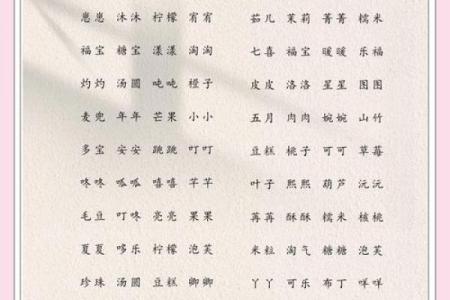 崽崽 沐沐 柠檬 宥宥 茹儿 茉莉 菁菁 糯米
福宝 糖宝 漾漾 淘淘 七喜 福宝 暖暖 乐福
灼灼 汤圆 吨吨 橙子 皮皮 洛洛 星星 图图
麦兜 年年 芒果 小小 五月 肉肉 婉婉 山竹
多宝 安安 跳跳 叮叮 豆糕 桃子 可可 草莓
咚咚 呱呱 嘻嘻 芊芊 叶子 熙熙 葫芦 沅沅
毛豆 叮咚 亮亮 果果 苒苒 酥酥 糯米 核桃
夏夏 哆乐 柠檬 泡芙 米粒 淘气 糖糖 泡芙
珍珠 汤圆 豆糕 卿卿 丫丫 可乐 布丁 咩咩